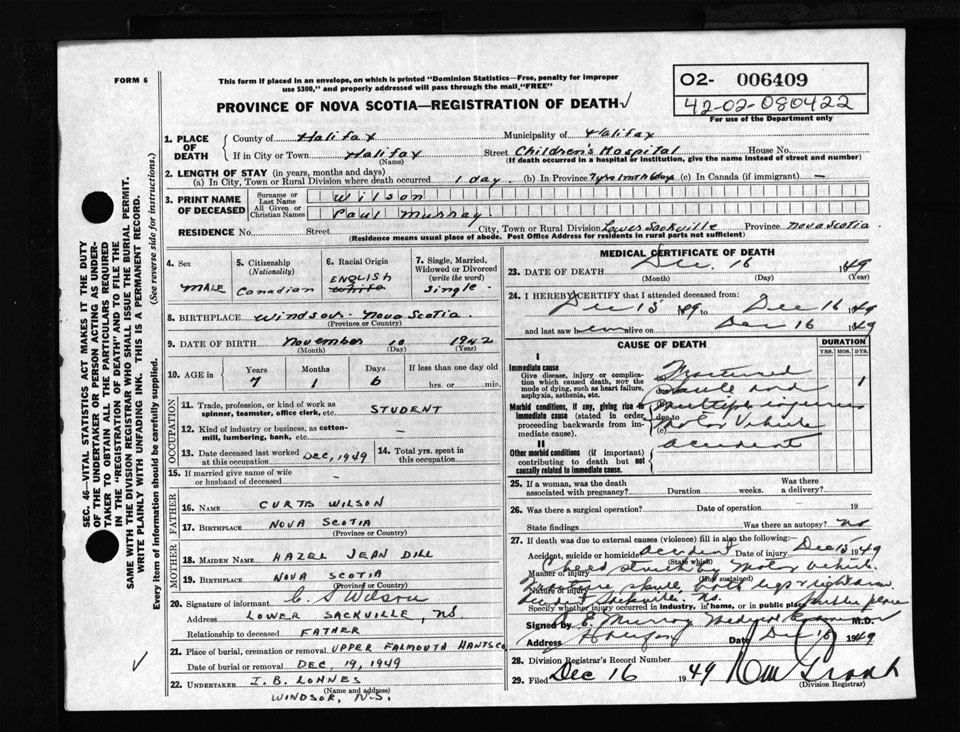 FORM 6
This form if placed in an envelope, on which is printed "Dominion Statistics—Free, penalty for improper
use $300," and properly addressed will pass through the mail, "FREE"
O2- 006409
42-02-080422
For use of the Department only
PROVINCE OF NOVA SCOTIA—REGISTRATION OF DEATH
1. PLACE OF DEATH County of Halifax Municipality of Halifax
If in City or Town Halifax (Name) Street Children's Hospital House No.
(If death occurred in a hospital or institution, give the name instead of street and number)
2. LENGTH OF STAY (in years, months and days)
(a) In City, Town or Rural Division where death occurred 1 day (b) In Province 7 yrs 1 mth 6 days (c) In Canada (if immigrant) —
3. PRINT NAME OF DECEASED Surname or Last Name Wilson
All Given or Christian Names Paul Murray
RESIDENCE No. Street City, Town or Rural Division Lower Sackville Province Nova Scotia
(Residence means usual place of abode. Post Office Address for residents in rural parts not sufficient)
4. Sex MALE
5. Citizenship (Nationality) Canadian
6. Racial Origin ENGLISH White
7. Single, Married, Widowed or Divorced (write the word) Single
8. BIRTHPLACE Windsor Nova Scotia
(Province or Country)
9. DATE OF BIRTH November 10 1942
(Month) (Day) (Year)
10. AGE in Years Months Days If less than one day old
7 1 6 hrs. or min.
OCCUPATION
11. Trade, profession, or kind of work as spinner, teamster, office clerk, etc. STUDENT
12. Kind of industry or business, as cotton-mill, lumbering, bank, etc. —
13. Date deceased last worked at this occupation Dec, 1949 14. Total yrs. spent in this occupation
15. If married give name of wife or husband of deceased
FATHER
16. NAME CURTIS WILSON
17. BIRTHPLACE NOVA SCOTIA
(Province or Country)
MOTHER
18. MAIDEN NAME HAZEL JEAN DILL
19. BIRTHPLACE NOVA SCOTIA
(Province or Country)
20. Signature of informant C. S Wilson
Address LOWER SACKVILLE, NS
Relationship to deceased FATHER
21. Place of burial, cremation or removal UPPER FALMOUTH HANTS CO
Date of burial or removal DEC, 19, 1949
22. UNDERTAKER I. B. LOHNES
(Name and address)
WINDSOR, N.S.
MEDICAL CERTIFICATE OF DEATH
23. DATE OF DEATH Dec. 16 1949
(Month) (Day) (Year)
24. I HEREBY CERTIFY that I attended deceased from:
Dec 15 1949 to Dec 16 1949
and last saw him alive on Dec 16 1949
CAUSE OF DEATH
DURATION
YRS. MOS. DYS.
I
Immediate cause
Give disease, injury or complication which caused death, NOT the mode of dying, such as heart failure, asphyxia, asthenia, etc.
(a) Fractured skull and 1
Morbid conditions, if any, giving rise to immediate cause (stated in order, proceeding backwards from immediate cause).
due to (b) multiple injuries
due to (c) Motor Vehicle
accident
II
Other morbid conditions (if important) contributing to death but not causally related to immediate cause.
25. If a woman, was the death associated with pregnancy? Duration weeks. Was there a delivery?
26. Was there a surgical operation? Date of operation 19
State findings Was there an autopsy? no
27. If death was due to external causes (violence) fill in also the following:—
Accident, suicide or homicide? accident Date of injury Dec 15 1949
(State which)
Manner of injury struck by Motor Vehicle
(How sustained)
Nature of injury Fracture skull both legs & right arm
Sackville. N.S.
Specify whether injury occurred in industry, in home, or in public place public place
Signed by E. Murray Medical Examiner M.D.
Address Halifax Date Dec 18 1949
28. Division Registrar's Record Number
29. Filed Dec 16 1949
(Division Registrar)
SEC. 46—VITAL STATISTICS ACT MAKES IT THE DUTY
OF THE UNDERTAKER OR PERSON ACTING AS UNDER-
TAKER TO OBTAIN ALL THE PARTICULARS REQUIRED
IN THE "REGISTRATION OF DEATH" AND TO FILE THE
SAME WITH THE DIVISION REGISTRAR WHO SHALL ISSUE THE BURIAL PERMIT.
WRITE PLAINLY WITH UNFADING INK. THIS IS A PERMANENT RECORD.
Every item of information should be carefully supplied. (See reverse side for instructions.)